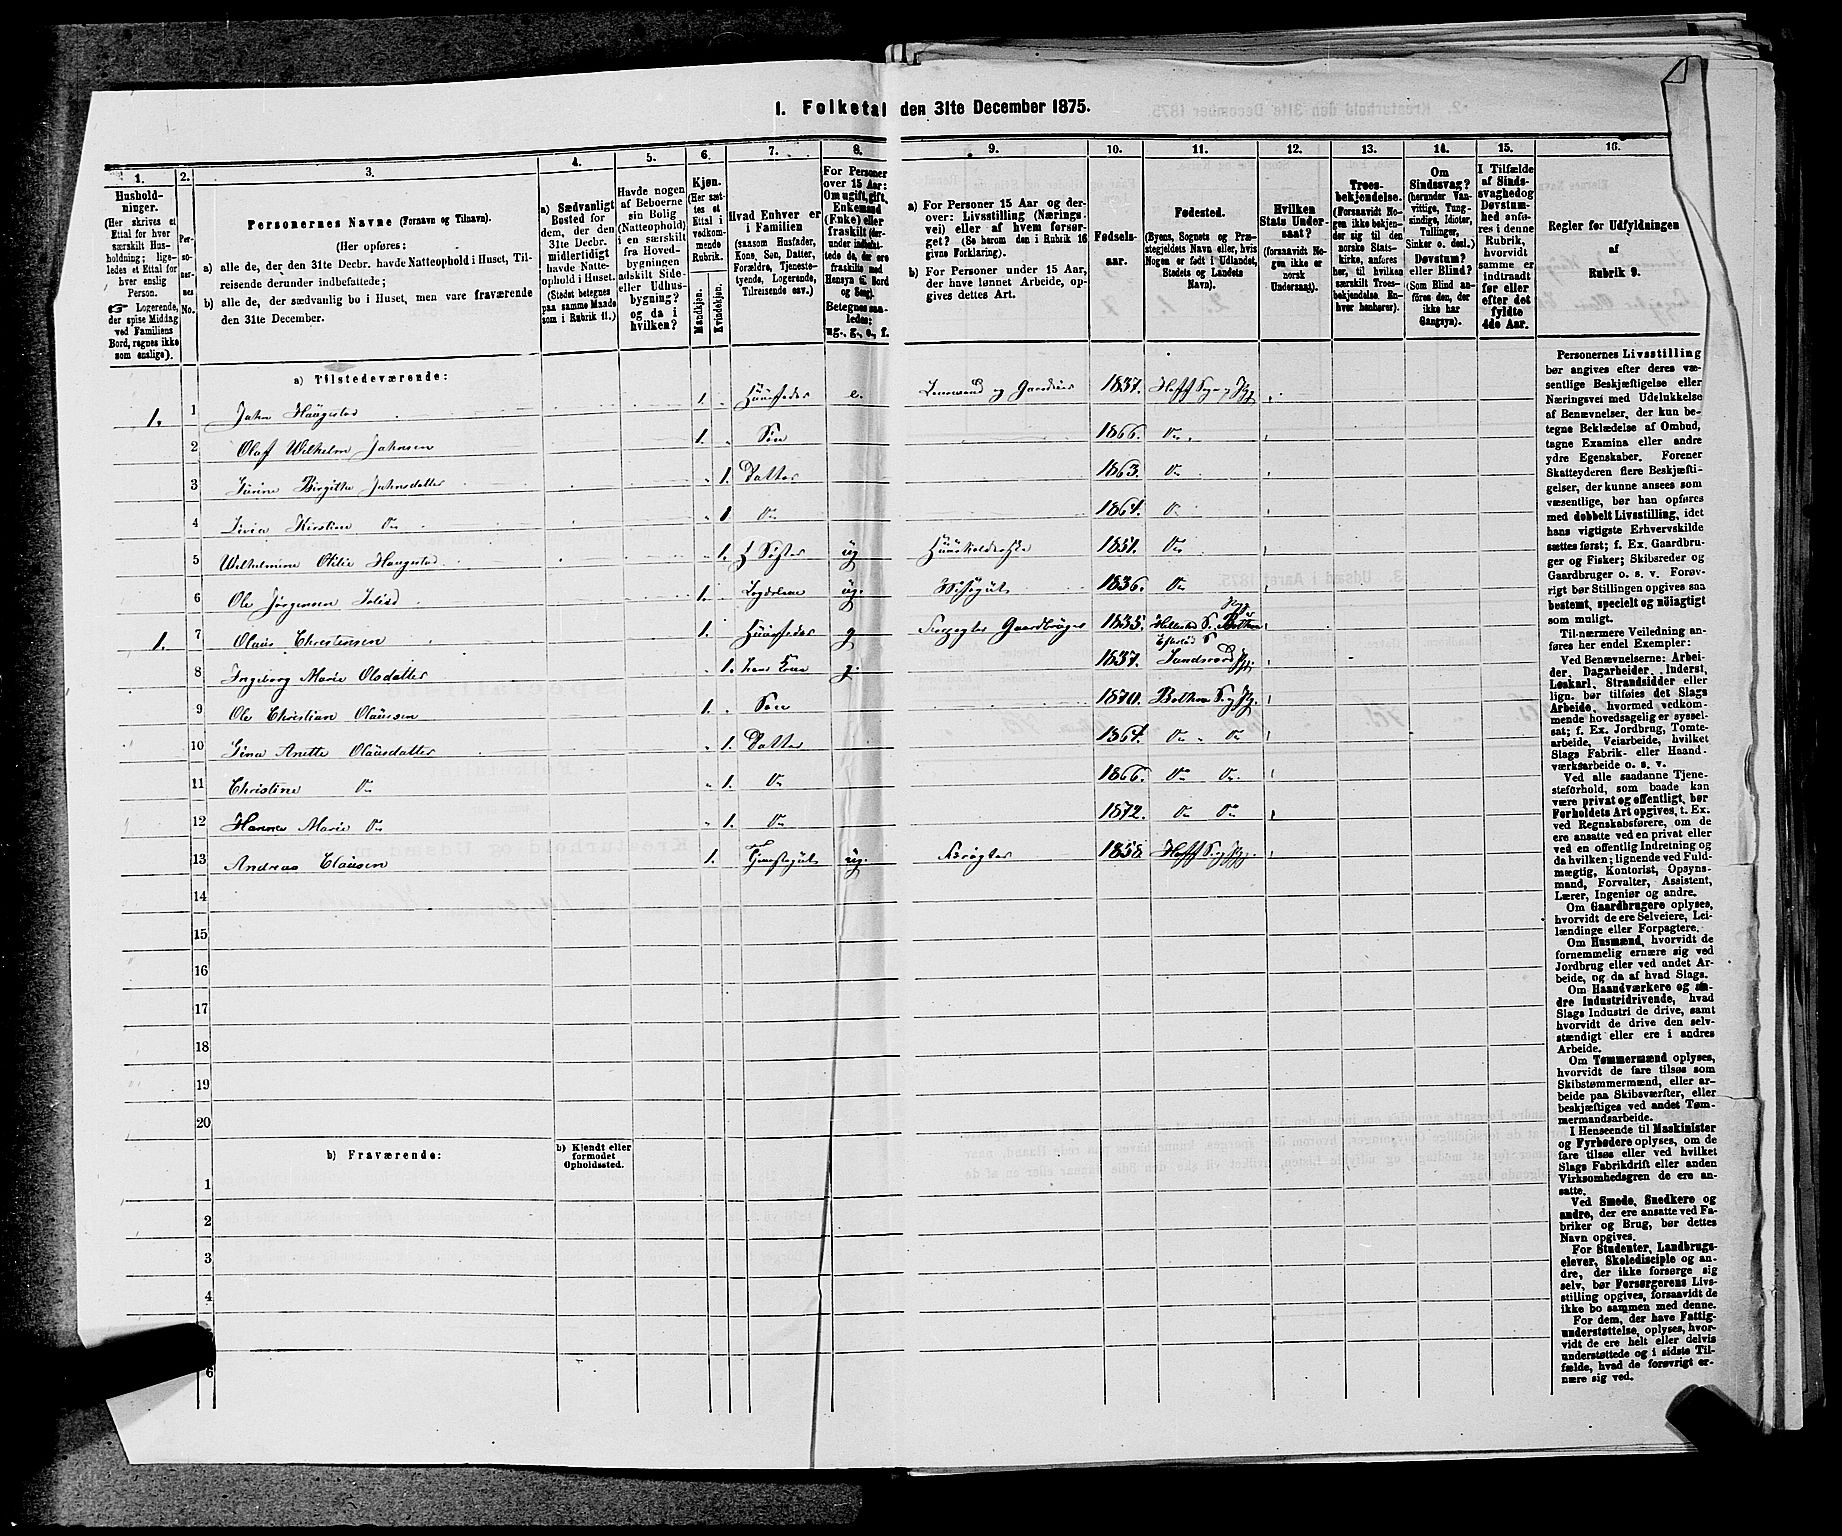 1. Folketal den 31te December 1875.
1. 2. 3. 4. 5. 6. 7. 8. 9. 10. 11. 12. 13. 14. 15. 16.
Husholdninger.
(Her skrives et
Ettal for hver
særskilt Husholdning;
ligeledes
et Ettal for
hver enslig
Person.
☞ Logerende,
der spise Middag
ved Familiens
Bord, regnes ikke
som enslige).
Personernes No.
Personernes Navne (Fornavn og Tilnavn).
(Her opføres:
a) alle de, der den 31te Decbr. havde Natteophold i Huset, Tilreisende
derunder indbefattede;
b) alle de, der sædvanlig bo i Huset, men vare fraværende
den 31te December.
a) Sædvanligt
Bosted for
dem, der den
31te Decbr.
midlertidigt
havde Natteophold
i Huset.
(Stedet betegnes
paa samme Maade
som i Rubrik 11.)
Havde nogen
af Beboerne
sin Bolig
(Natteophold)
i en særskilt
fra Hovedbygningen
adskilt Side-
eller Udhusbygning?
og da i
hvilken?
Kjøn.
(Her sættes
et
Ettal i
vedkommende
Rubrik.
Mandkjøn.
Kvindekjøn.
Hvad Enhver er
i Familien
(saasom Husfader,
Kone, Søn, Datter,
Forældre, Tjenestetyende,
Logerende,
Tilreisende osv.)
For Personer
over 15 Aar:
Om ugift, gift,
Enkemand
(Enke) eller
fraskilt
Betegnes saaledes:
ug., g., e., f.
a) For Personer 15 Aar og derover:
Livsstilling (Næringsvei)
eller af hvem forsørget?
(Se herom den i Rubrik 16
givne Forklaring).
b) For Personer under 15 Aar,
der have lønnet Arbeide, opgives
dettes Art.
Fødselsaar.
Fødested.
(Byens, Sognets og Præstegjeldets
Navn eller, hvis
Nogen er født i Udlandet,
Stedets og Landets
Navn).
Hvilken
Stats Undersaat?
(forsaavidt Nogen
ikke er
norsk
Undersaat).
Troesbekjendelse.
(Forsaavidt Nogen
ikke bekjender
sig til den
norske Statskirke,
anføres
her, til hvilken
særskilt Troesbekjendelse
Enhver
henhører).
Om
Sindssvag?
(herunder Vanvittige,
Tungsindige,
Idioter,
Tullinger,
Sinker o. desl.)
Døvstum?
eller Blind?
(Som Blind anføres
den, der
ikke har
Gangsyn).
I Tilfælde
af Sindssvaghed
og
Døvstumhed
anføres
i denne
Rubrik,
hvorvidt
samme er
indtraadt
før eller
efter det
fyldte
4de Aar.
Regler for Udfyldningen
af
Rubrik 9.
a) Tilstedeværende:
1. 1 John Haugestad 1. Huusfader e. Lensmand og Gaardeier 1837. Hoff S. og Pg.
2 Olaf Wilhelm Johnsen 1. Søn 1866. Do.
3 Birgithe Johnsdatter 1. Datter 1863. Do
4 Kirstine Do 1. Do 1864. Do
5 Wilhelmine Otilie Haugestad 1. Søster ug 1851. Do.
6 Ole Jørgensen 1. Logerende ug. 1836. Do
1. 7 Olaus Christensen 1. Huusfader g Gaardbruger 1835. Hillestad S. Bothne Pg
8 Ingeborg Marie Olsdatter 1. hans Kone g. 1837. Sandsværd Pg. Eftelød S
9 Ole Christian Olausen 1. Søn 1870. Bothne S. og Pg.
10 Anette Olausdatter 1. Datter 1864. Do Do
11 Christine Do 1. Do 1866. Do Do.
12 Hanna Marie Do 1. Do 1872. Do Do
13 Andreas Clausen 1. Tjenestegut ug. 1858. Hoff S. og Pg.
14
15
16
17
18
19
20
b) Fraværende:
b) Kjendt eller
formodet
Opholdssted.
1
2
3
4
6
Personernes Livsstilling
bør angives efter deres væsentlige
Beskjæftigelse eller
Næringsvei med Udelukkelse
af Benævnelser, der kun betegne
Beklædelse af Ombud,
tagne Examina eller andre
ydre Egenskaber. Forener
Skatteyderen flere Beskjæftigelser,
der kunne ansees som
væsentlige, bør han opføres
med dobbelt Livsstilling, idet
hans vigtigste Erhvervskilde
sættes først; f. Ex. Gaardbruger
og Fisker; Skibsreder og
Gaardbruger o. s. v. Forøvrigt
bør Stillingen opgives saa
bestemt, specielt og nöiagtigt
som muligt.
Til nærmere Veiledning anføres
her endel Exempler:
Ved Benævnelserne: Arbeider,
Dagarbeider, Inderst,
Løskarl, Strandsidder eller
lign. bør tilføies det Slags
Arbeide, hvormed vedkommende
hovedsagelig er sysselsat;
f. Ex. Jordbrug, Tomtearbeide,
Veiarbeide, hvilket
Slags Fabrik- eller Haandværksarbeide
o. s. v.
Ved alle saadanne Tjenesteforhold,
som baade kan
være privat og offentligt, bør
Forholdets Art opgives, t. Ex.
ved Regnskabsførere, om de
ere ansatte ved en privat eller
ved en offentlig Indretning og
da hvilken; lignende ved Fuldmægtig,
Kontorist, Opsynsmand,
Forvalter, Assistent,
Lærer, Ingeniør og andre.
Om Gaardbrugere oplyses,
hvorvidt de ere Selveiere, Leilændinge
eller Forpagtere.
Om Husmænd, hvorvidt de
fornemmelig ernære sig ved
Jordbrug eller ved andet Arbeide,
og da af hvad Slags.
Om Haandværkere og andre
Industridrivende, hvad
Slags Industri de drive, samt
hvorvidt de drive den selvstændigt
eller ere i andres
Arbeide.
Om Tømmermænd oplyses,
hvorvidt de fare tilsøs som
Skibstømmermænd, eller arbeide
paa Skibsværfter, eller
beskjæftiges ved andet Tømmermandsarbeide.
I Henseende til Maskinister
og Fyrbødere oplyses, om de
fare tilsøs eller ved hvilket
Slags Fabrikdrift eller anden
Virksomhedsgren de ere ansatte.
Ved Smede, Snedkere og
andre, der ere ansatte ved Fabriker
og Brug, bør dettes
Navn opgives.
For Studenter, Landbrugselever,
Skoledisciple og andre,
der ikke forsørge sig
selv, bør Forsørgerens Livsstilling
opgives, forsaavidt de
ikke bo sammen med denne.
For dem, der have Fattigunderstøttelse,
oplyses, hvorvidt
de ere helt eller delvis
understøttede og i sidste Tilfælde,
hvad de forøvrigt ernære
sig ved.